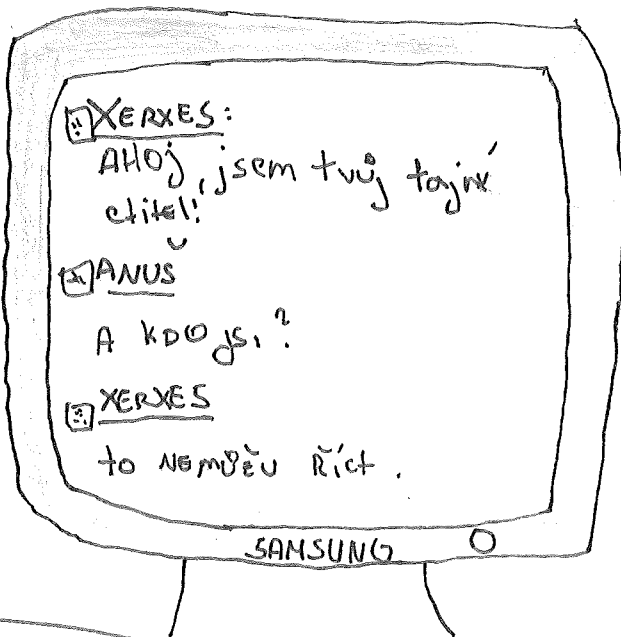 XERXES:
AHOJ, jsem tvůj tajný
ctitel!
ANUŠ
A KDO jsi?
XERXES
to NEmůžu Říct.
SAMSUNG